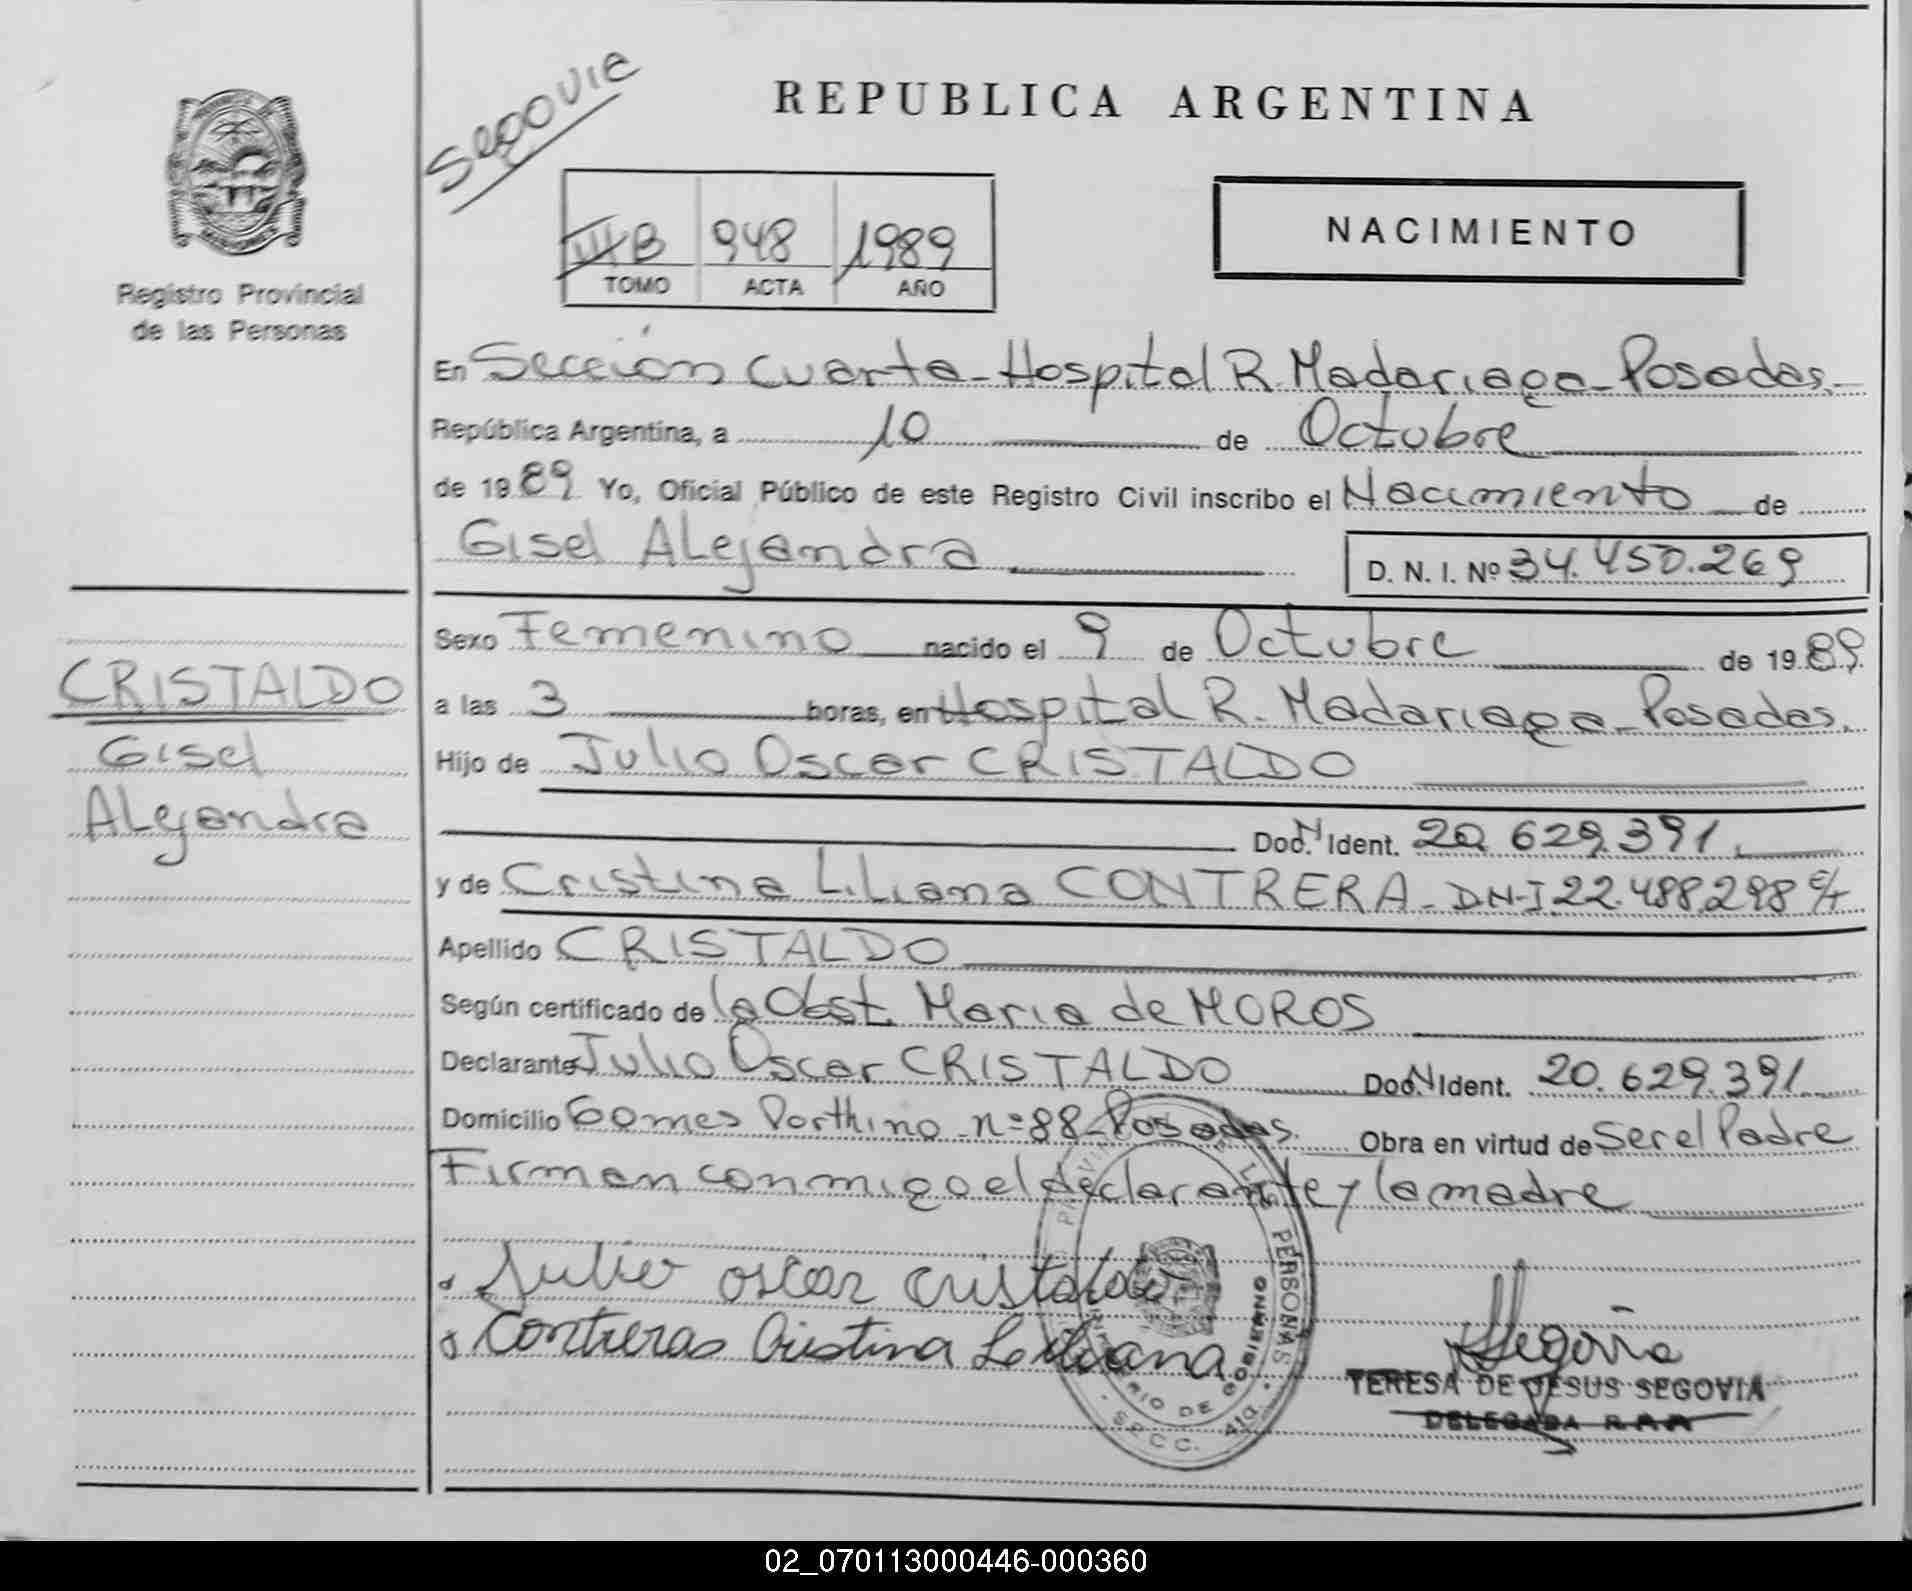 Segovia
REPUBLICA ARGENTINA
NACIMIENTO
III B 948 1989
TOMO ACTA AÑO
Registro Provincial
de las Personas
En Sección Cuarta - Hospital R. Madariaga - Posadas.
República Argentina, a 10 de Octubre
de 1989 Yo, Oficial Público de este Registro Civil inscribo el Nacimiento de
Gisel Alejandra D. N. I. Nº 34.450.269
CRISTALDO
Gisel
Alejandra
Sexo Femenino nacido el 9 de Octubre de 1989
a las 3 horas, en Hospital R. Madariaga - Posadas.
Hijo de Julio Oscar CRISTALDO
Doc. N Ident. 20.629.391
y de Cristina Liliana CONTRERA - DNI 22.488.298 C/T
Apellido CRISTALDO
Según certificado de la Obst. Maria de MOROS
Declarante Julio Oscar CRISTALDO Doc. N Ident. 20.629.391
Domicilio Gomes Porthino nº 88 - Posadas. Obra en virtud de Ser el Padre
Firman conmigo el declarante y la madre
Julio oscar cristaldo
Contreras Cristina Liliana
PERSONAS
DE GOBIERNO
S.P.C.C.
Segovia
TERESA DE JESUS SEGOVIA
DELEGADA
02_070113000446-000360